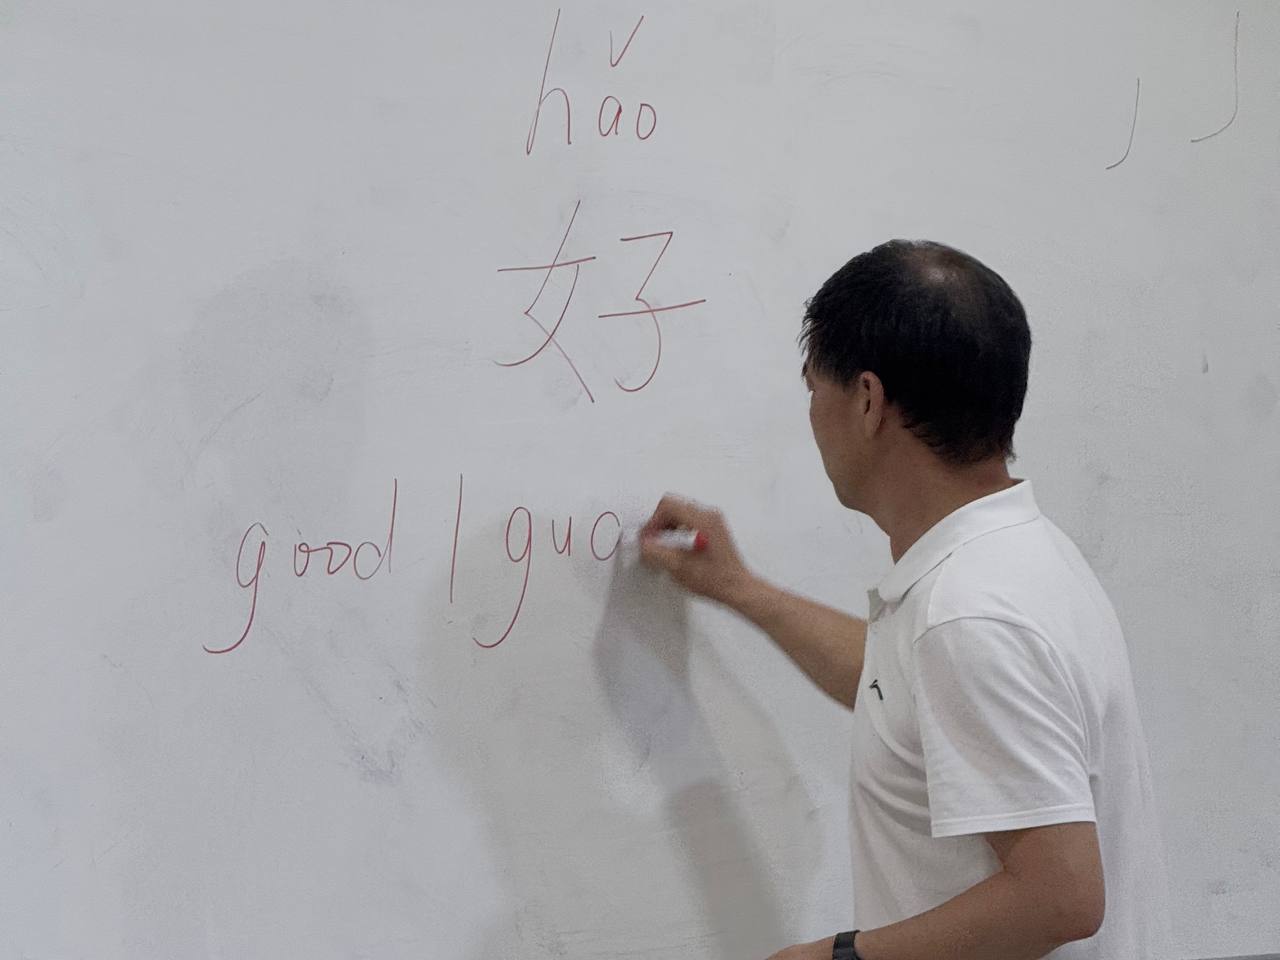 hǎo
好
good | gua